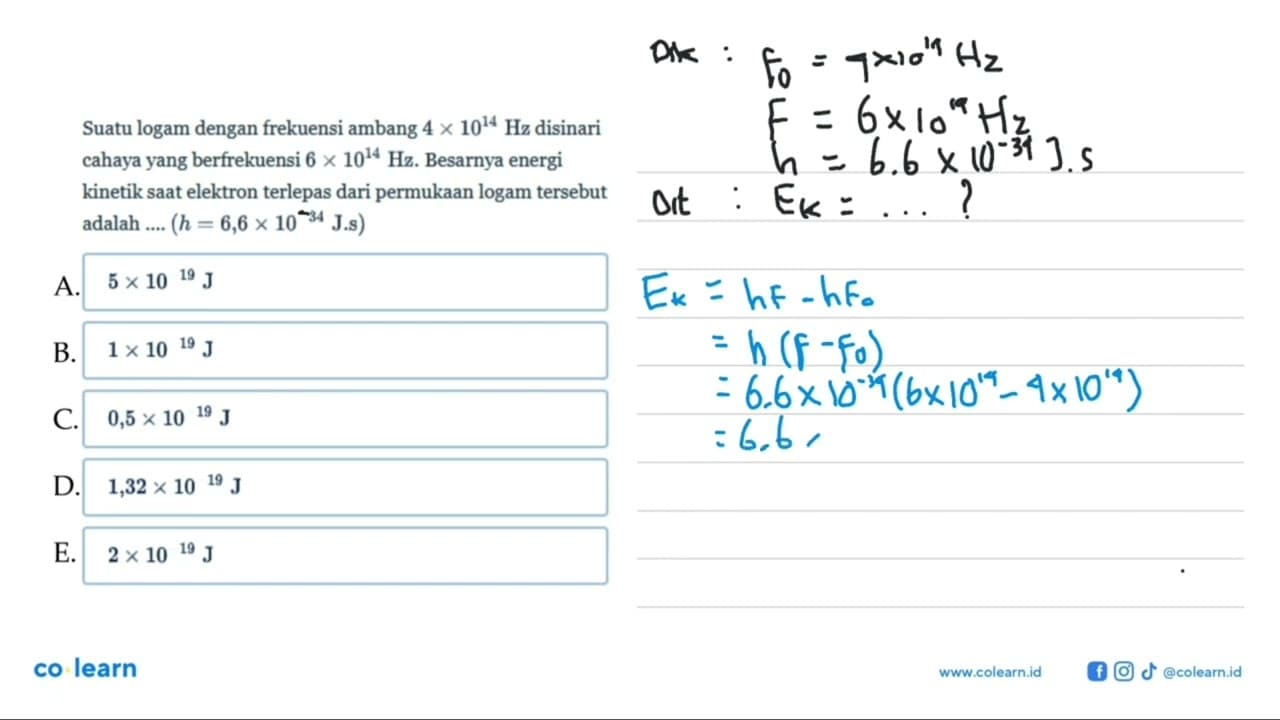 Suatu logam dengan frekuensi ambang 4 × 10¹⁴ Hz disinari
cahaya yang berfrekuensi 6 × 10¹⁴ Hz. Besarnya energi
kinetik saat elektron terlepas dari permukaan logam tersebut
adalah .... (h = 6,6 × 10⁻³⁴ J.s)
A. 5 × 10 ¹⁹ J
B. 1 × 10 ¹⁹ J
C. 0,5 × 10 ¹⁹ J
D. 1,32 × 10 ¹⁹ J
E. 2 × 10 ¹⁹ J
Dik : F₀ = 4×10¹⁴ Hz
F = 6×10¹⁴ Hz
h = 6.6 × 10⁻³⁴ J.s
Dit : Eₖ = ... ?
Eₖ = hF - hF₀
= h (F - F₀)
= 6.6 × 10⁻³⁴ (6×10¹⁴ - 4×10¹⁴)
= 6.6
co learn
www.colearn.id
@colearn.id